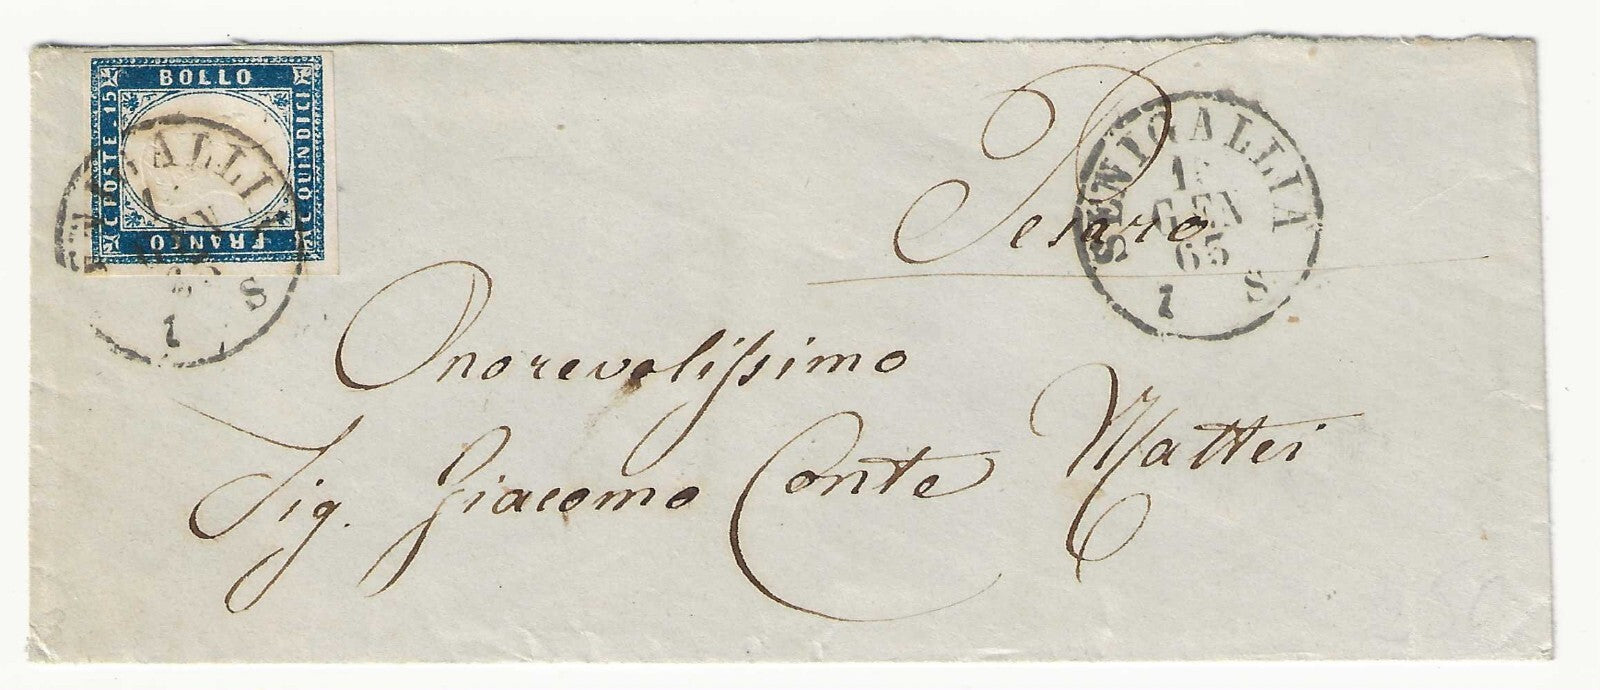 BOLLO
C. POSTE. 15
C. QUINDICI
FRANCO
SENIGALLIA
GEN
65
1 S
Pesaro
SENIGALLIA
GEN
65
1 S
Onorevolissimo
Sig. Giacomo Conte Mattei